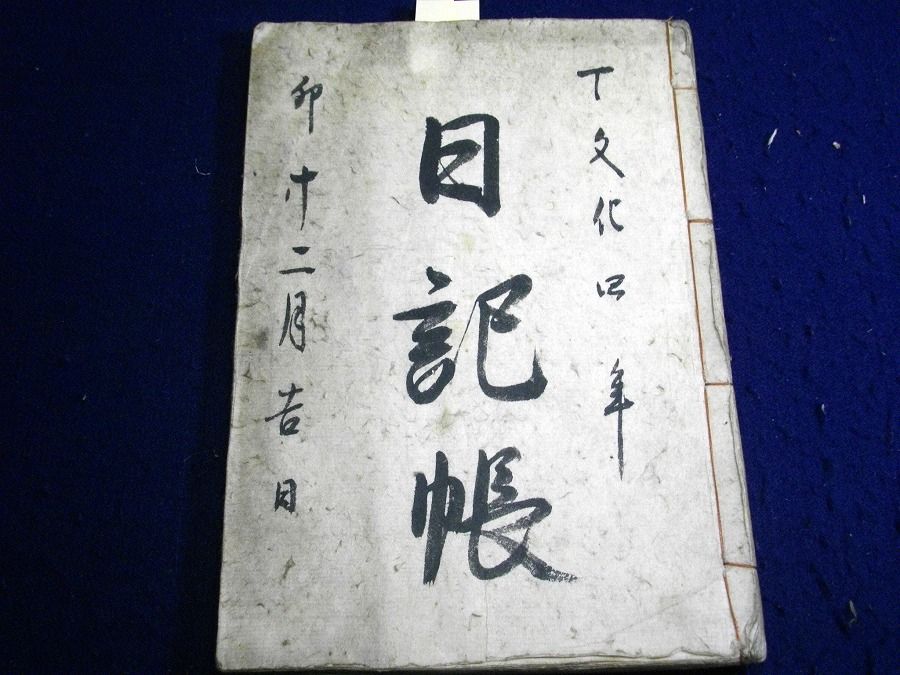 丁文化四年
日記帳
卯十二月吉日